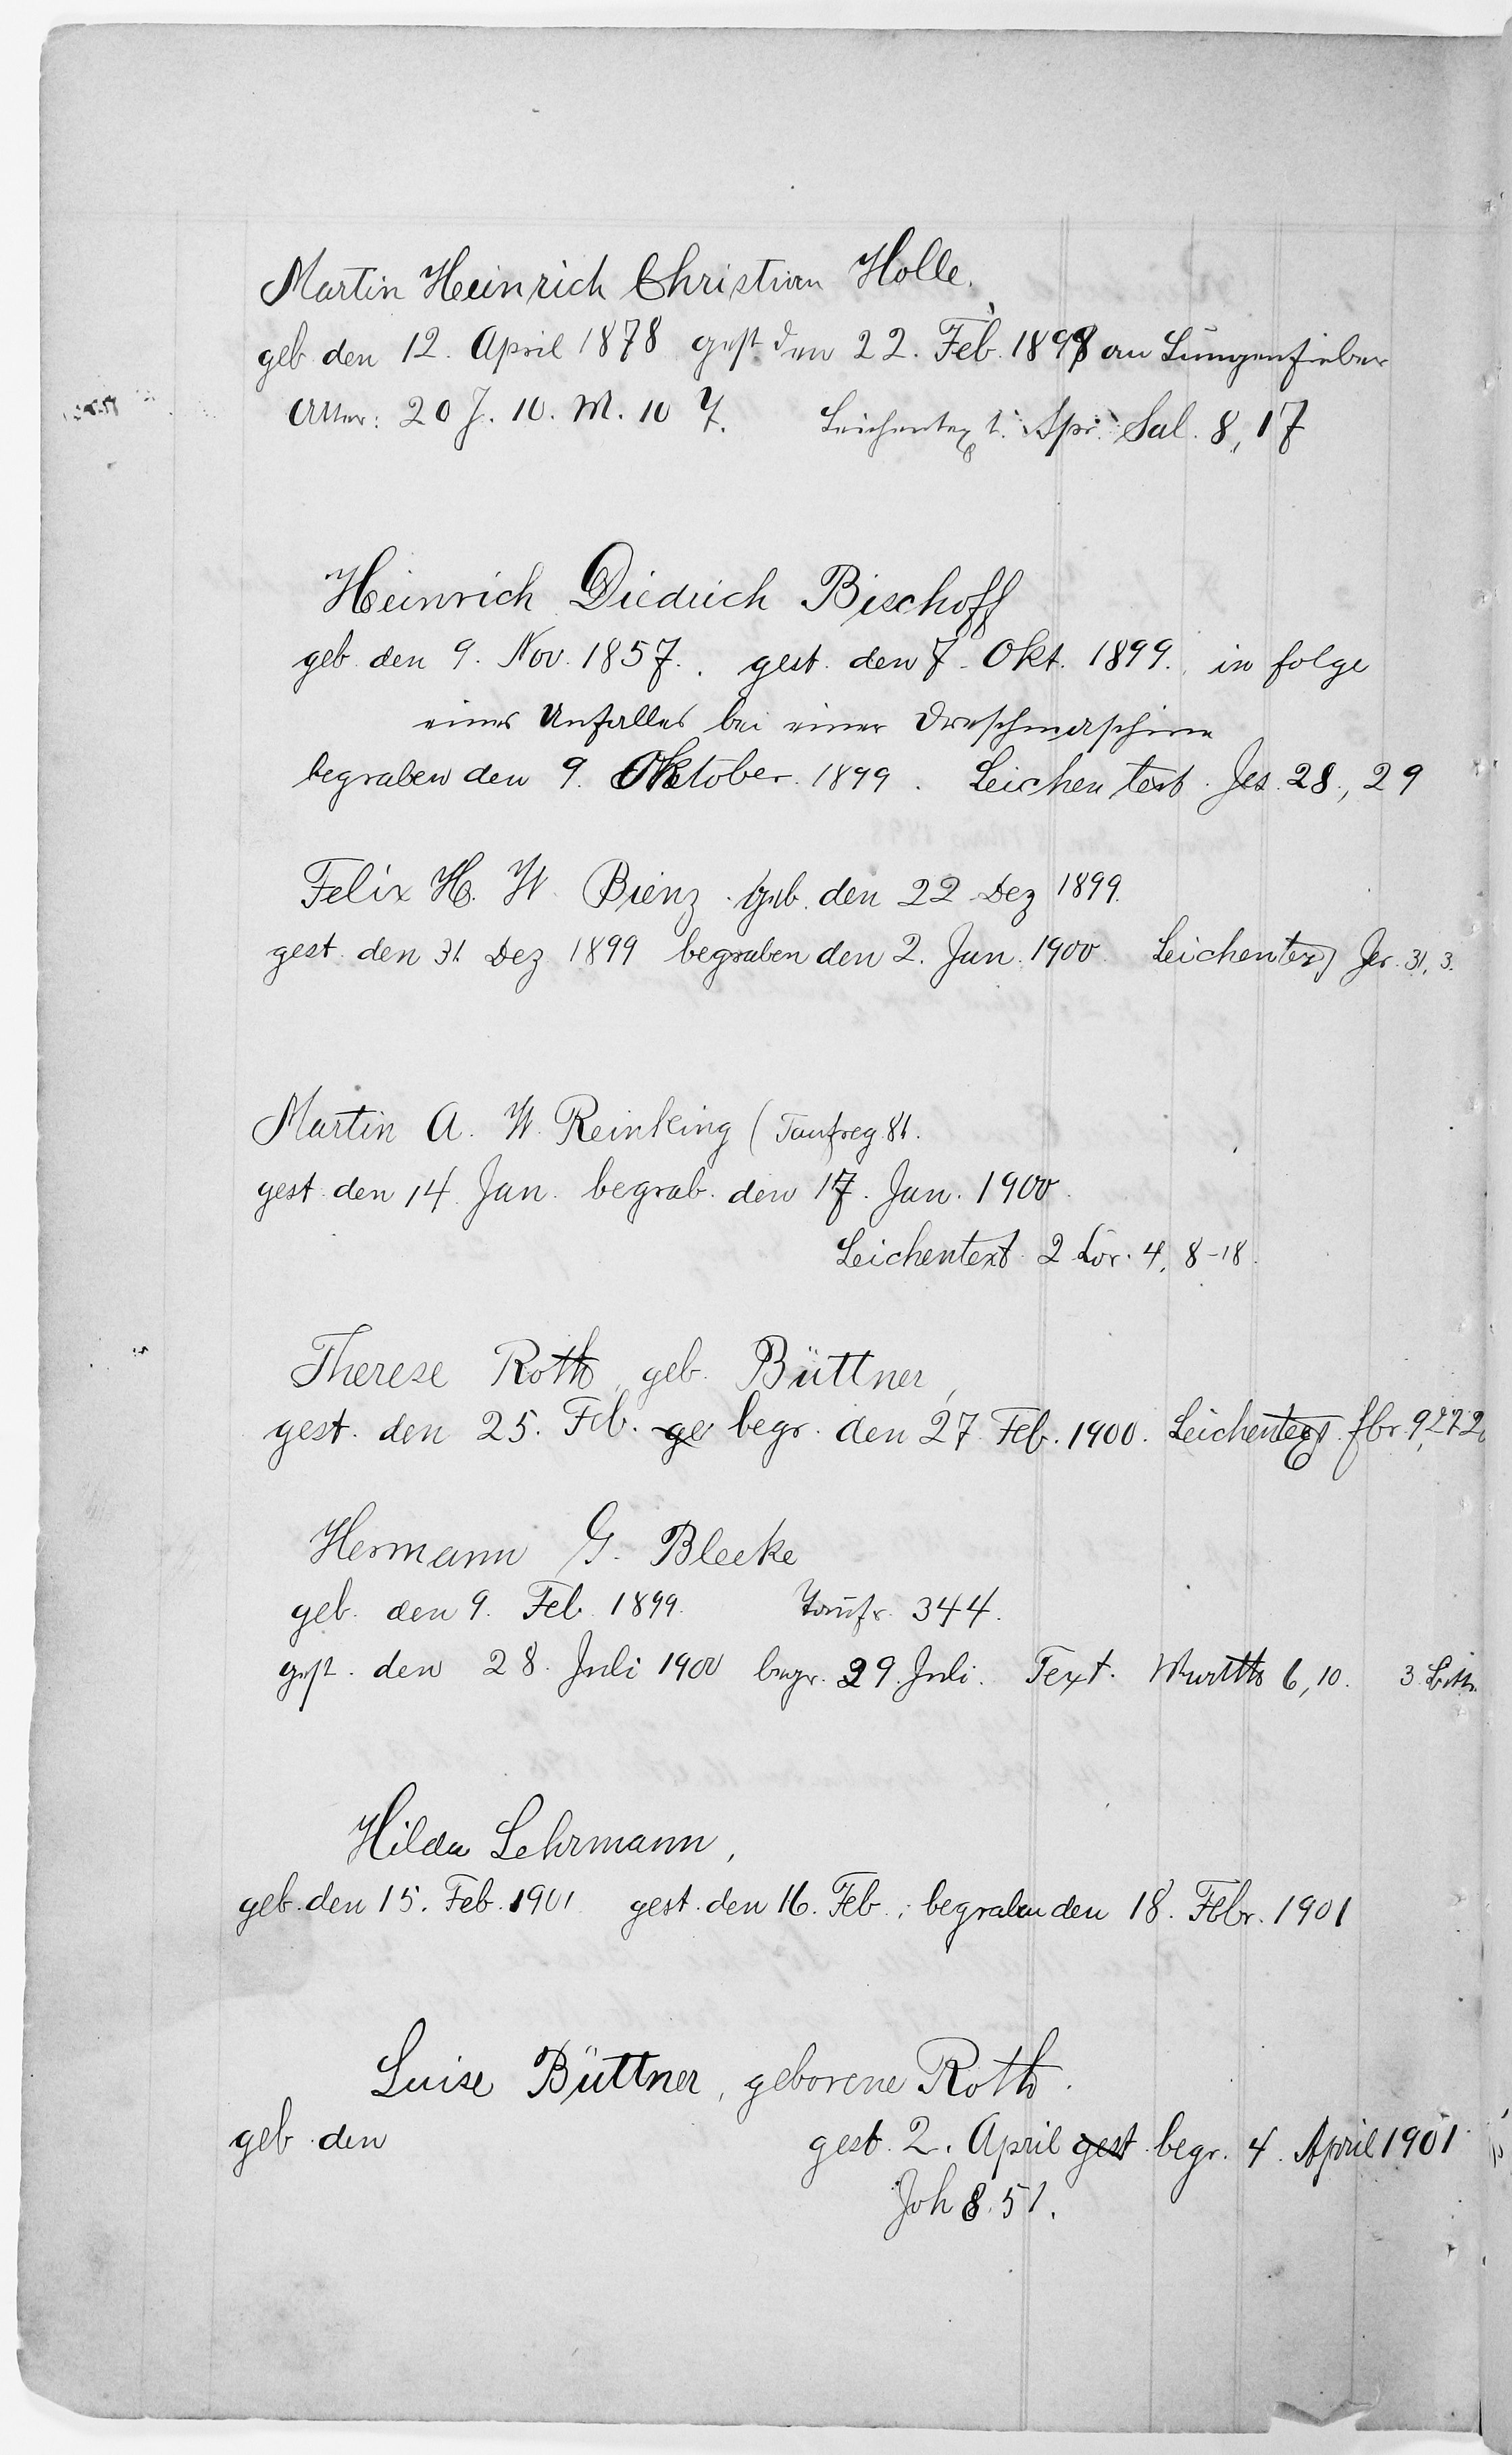 Martin Heinrich Christian Holle.
geb den 12. April 1878 gest den 22. Feb. 1899 an Lungenfieber
Alter: 20 J. 10. M. 10 T. Leichentext: Spr. Sal. 8, 17
Heinrich Diedrich Bischoff
geb den 9. Nov. 1857. gest. den 7. Okt. 1899. in folge
eines Unfalles bei einer Dreschmaschine
begraben den 9. Oktober. 1899. Leichen text. Jes. 28, 29
Felix H. W. Bienz. geb. den 22 Dez 1899.
gest. den 31. Dez 1899 begraben den 2. Jan. 1900. Leichentex Jer. 31, 3.
Martin A. W. Reinking (Taufreg. 81.
gest den 14. Jan. begrab. den 17. Jan. 1900.
Leichentext 2 Cor. 4, 8-18.
Therese Roth, geb. Büttner,
gest. den 25. Feb. ge begr. den 27 Feb. 1900. Leichentext.
Hermann G. Bleeke
geb. den 9. Feb. 1899. Taufr. 344.
gest. den 28. Juli 1900 begr. 29. Juli. Text. Matth 6, 10. 3. Bitte
Hilda Lehrmann,
geb. den 15. Feb. 1901 gest. den 16. Feb.; begraben den 18. Febr. 1901
Luise Büttner, geborene Roth.
geb den gest. 2. April gest begr. 4. April 1901
Joh 8. 51.